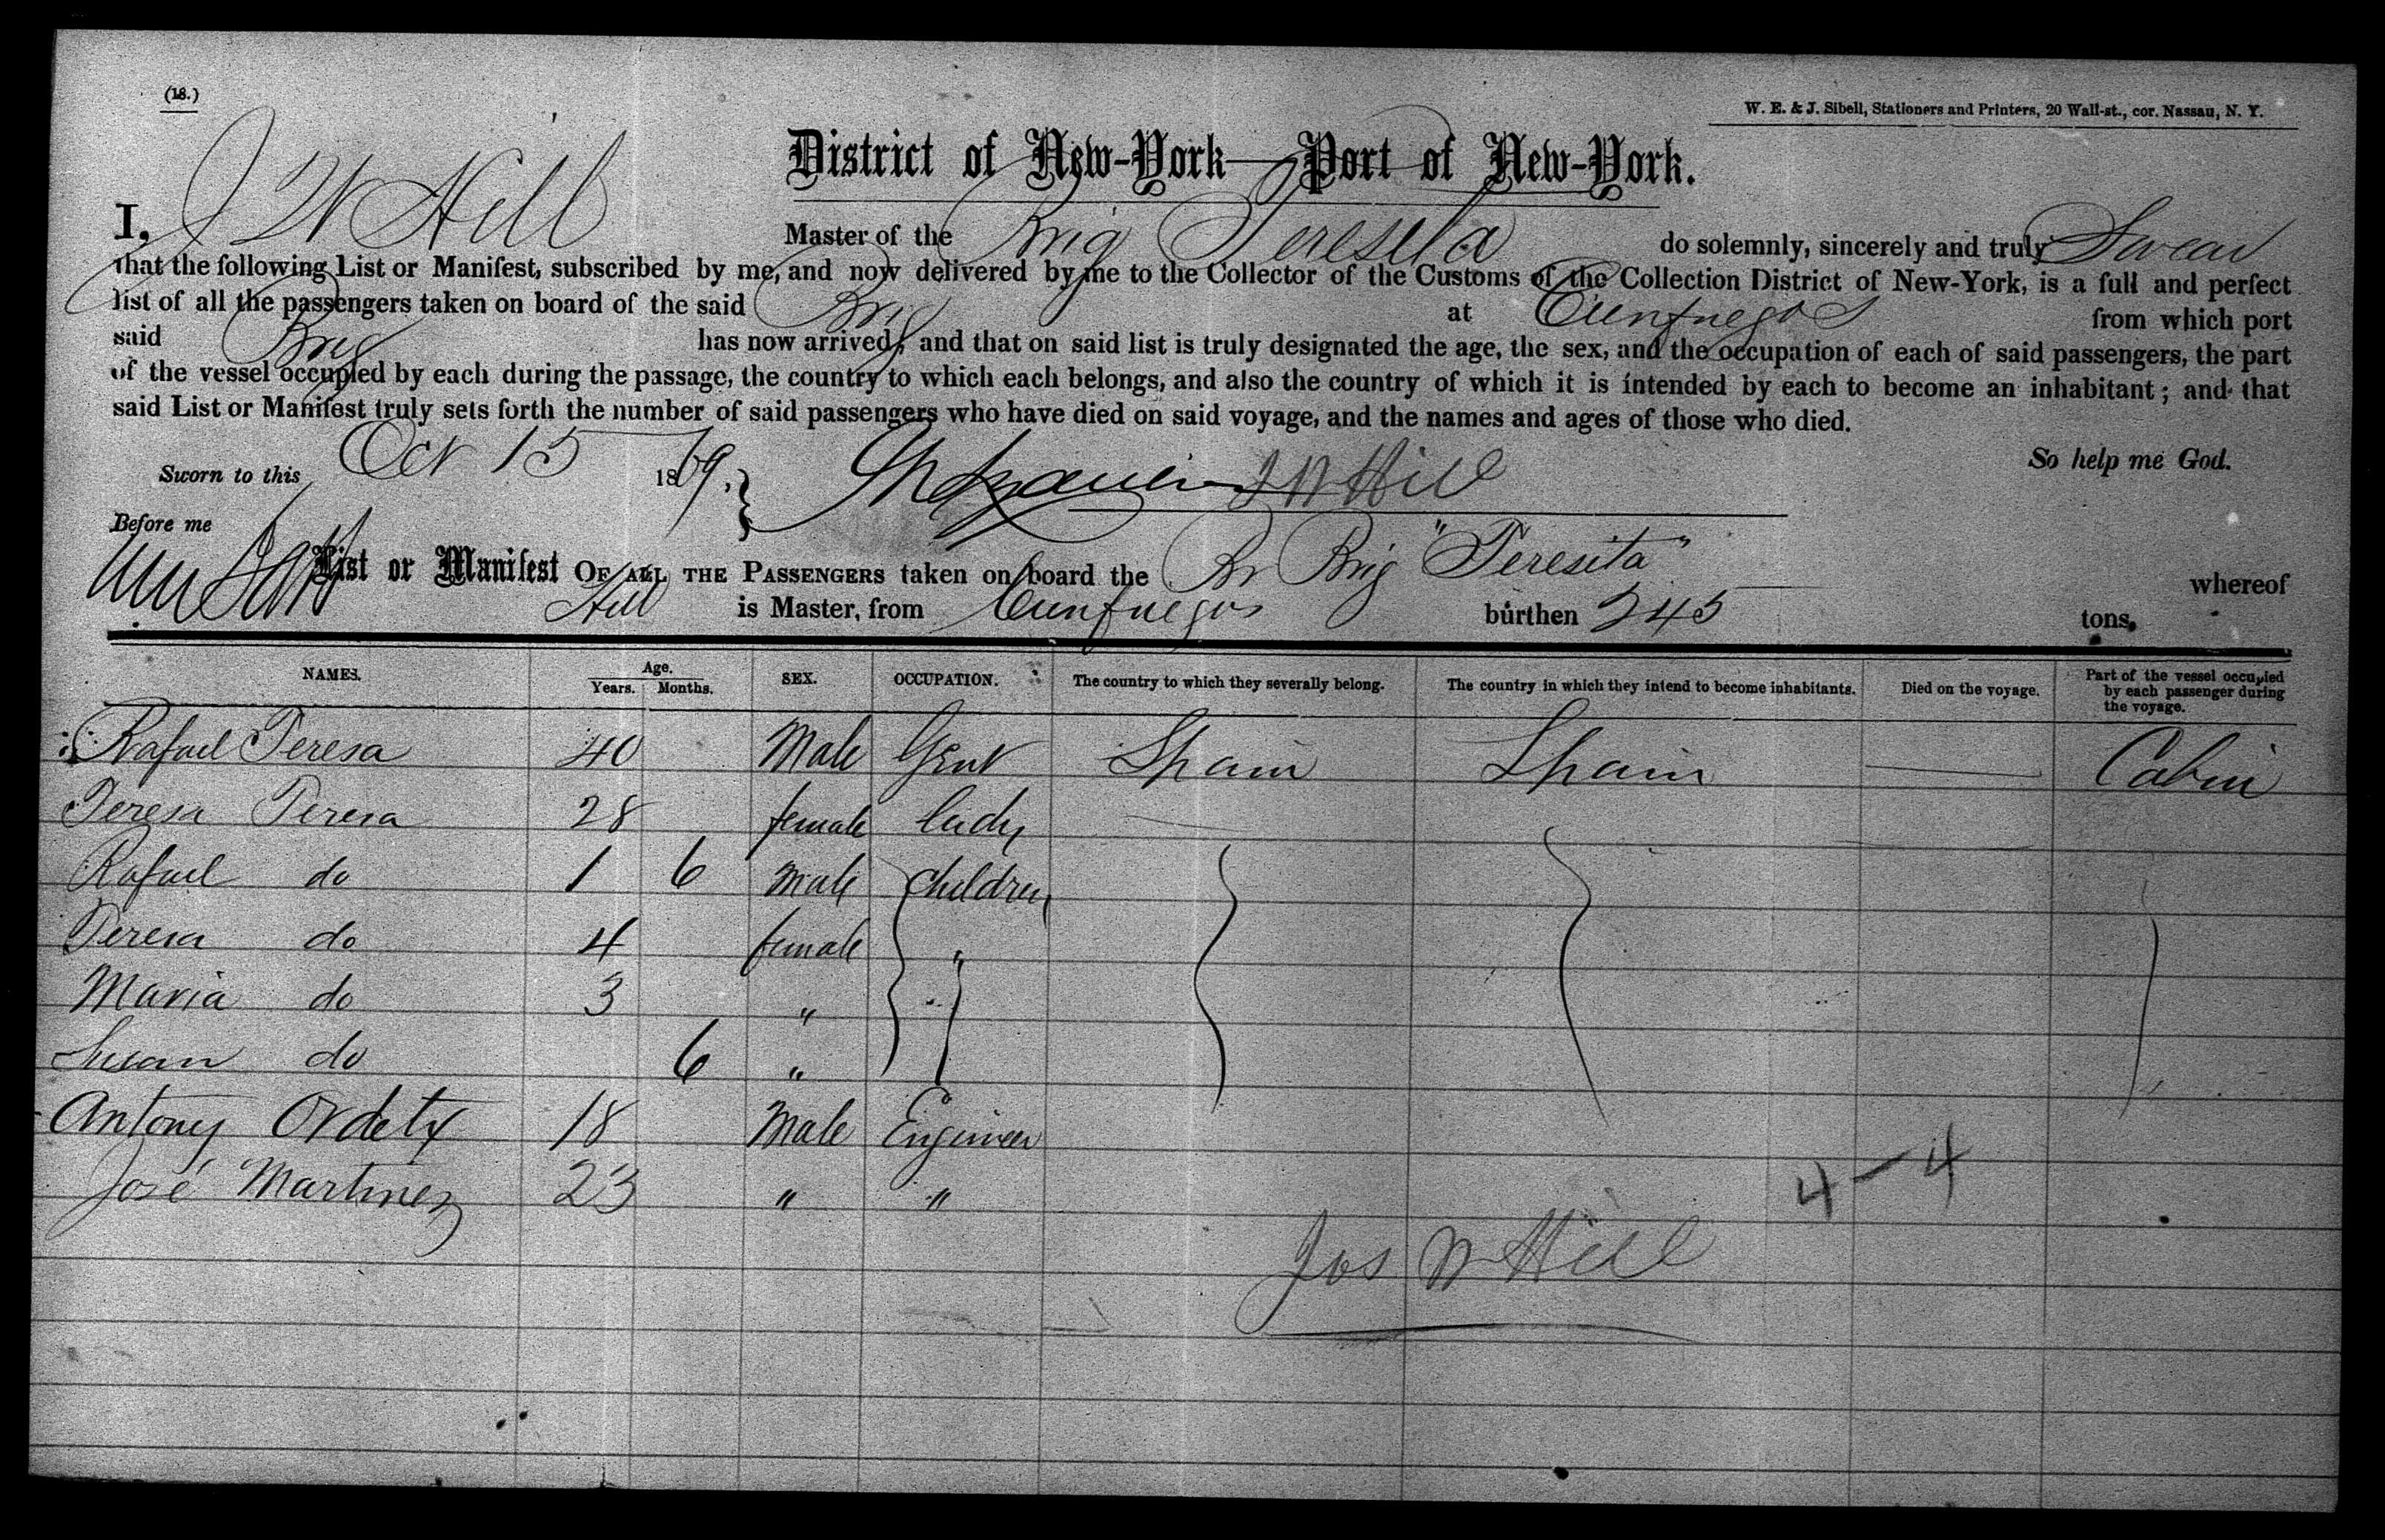 (18.)
W. E. & J. Sibell, Stationers and Printers, 20 Wall-st., cor. Nassau, N. Y.
District of New-York—Port of New-York.
I, J W Hill Master of the Brig Teresita do solemnly, sincerely and truly Swear
that the following List or Manifest, subscribed by me, and now delivered by me to the Collector of the Customs of the Collection District of New-York, is a full and perfect
list of all the passengers taken on board of the said Brig at Cienfuegos from which port
said Brig has now arrived; and that on said list is truly designated the age, the sex, and the occupation of each of said passengers, the part
of the vessel occupied by each during the passage, the country to which each belongs, and also the country of which it is intended by each to become an inhabitant; and that
said List or Manifest truly sets forth the number of said passengers who have died on said voyage, and the names and ages of those who died.
So help me God.
Sworn to this Oct 15 1869, J W Hill
Before me
List or Manifest OF ALL THE PASSENGERS taken on board the Br Brig "Teresita" whereof
Hill is Master, from Cienfuegos burthen 245 tons.
NAMES. Age. Years. Months. SEX. OCCUPATION. The country to which they severally belong. The country in which they intend to become inhabitants. Died on the voyage. Part of the vessel occupied by each passenger during the voyage.
Rafael Teresa 40 Male Gent Spain Spain — Cabin
Teresa Teresa 28 female Lady
Rafael do 1 6 Male Children
Teresa do 4 female "
Maria do 3 " "
Susan do 6 "
Antony Ordetx 18 Male Engineer
José Martinez 23 " "
4 — 4
Jos W Hill